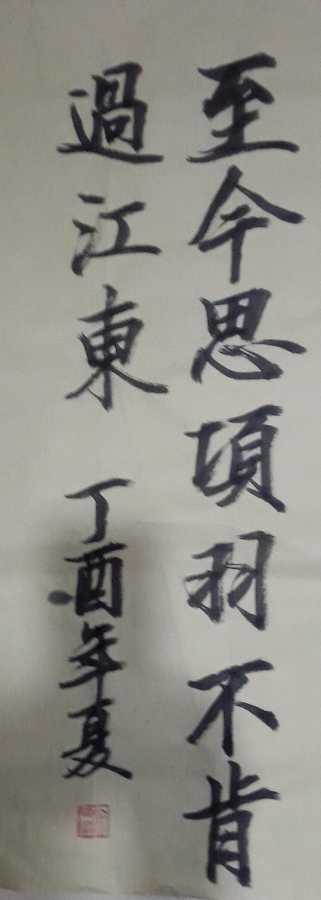 至今思項羽不肯
過江東 丁酉年夏